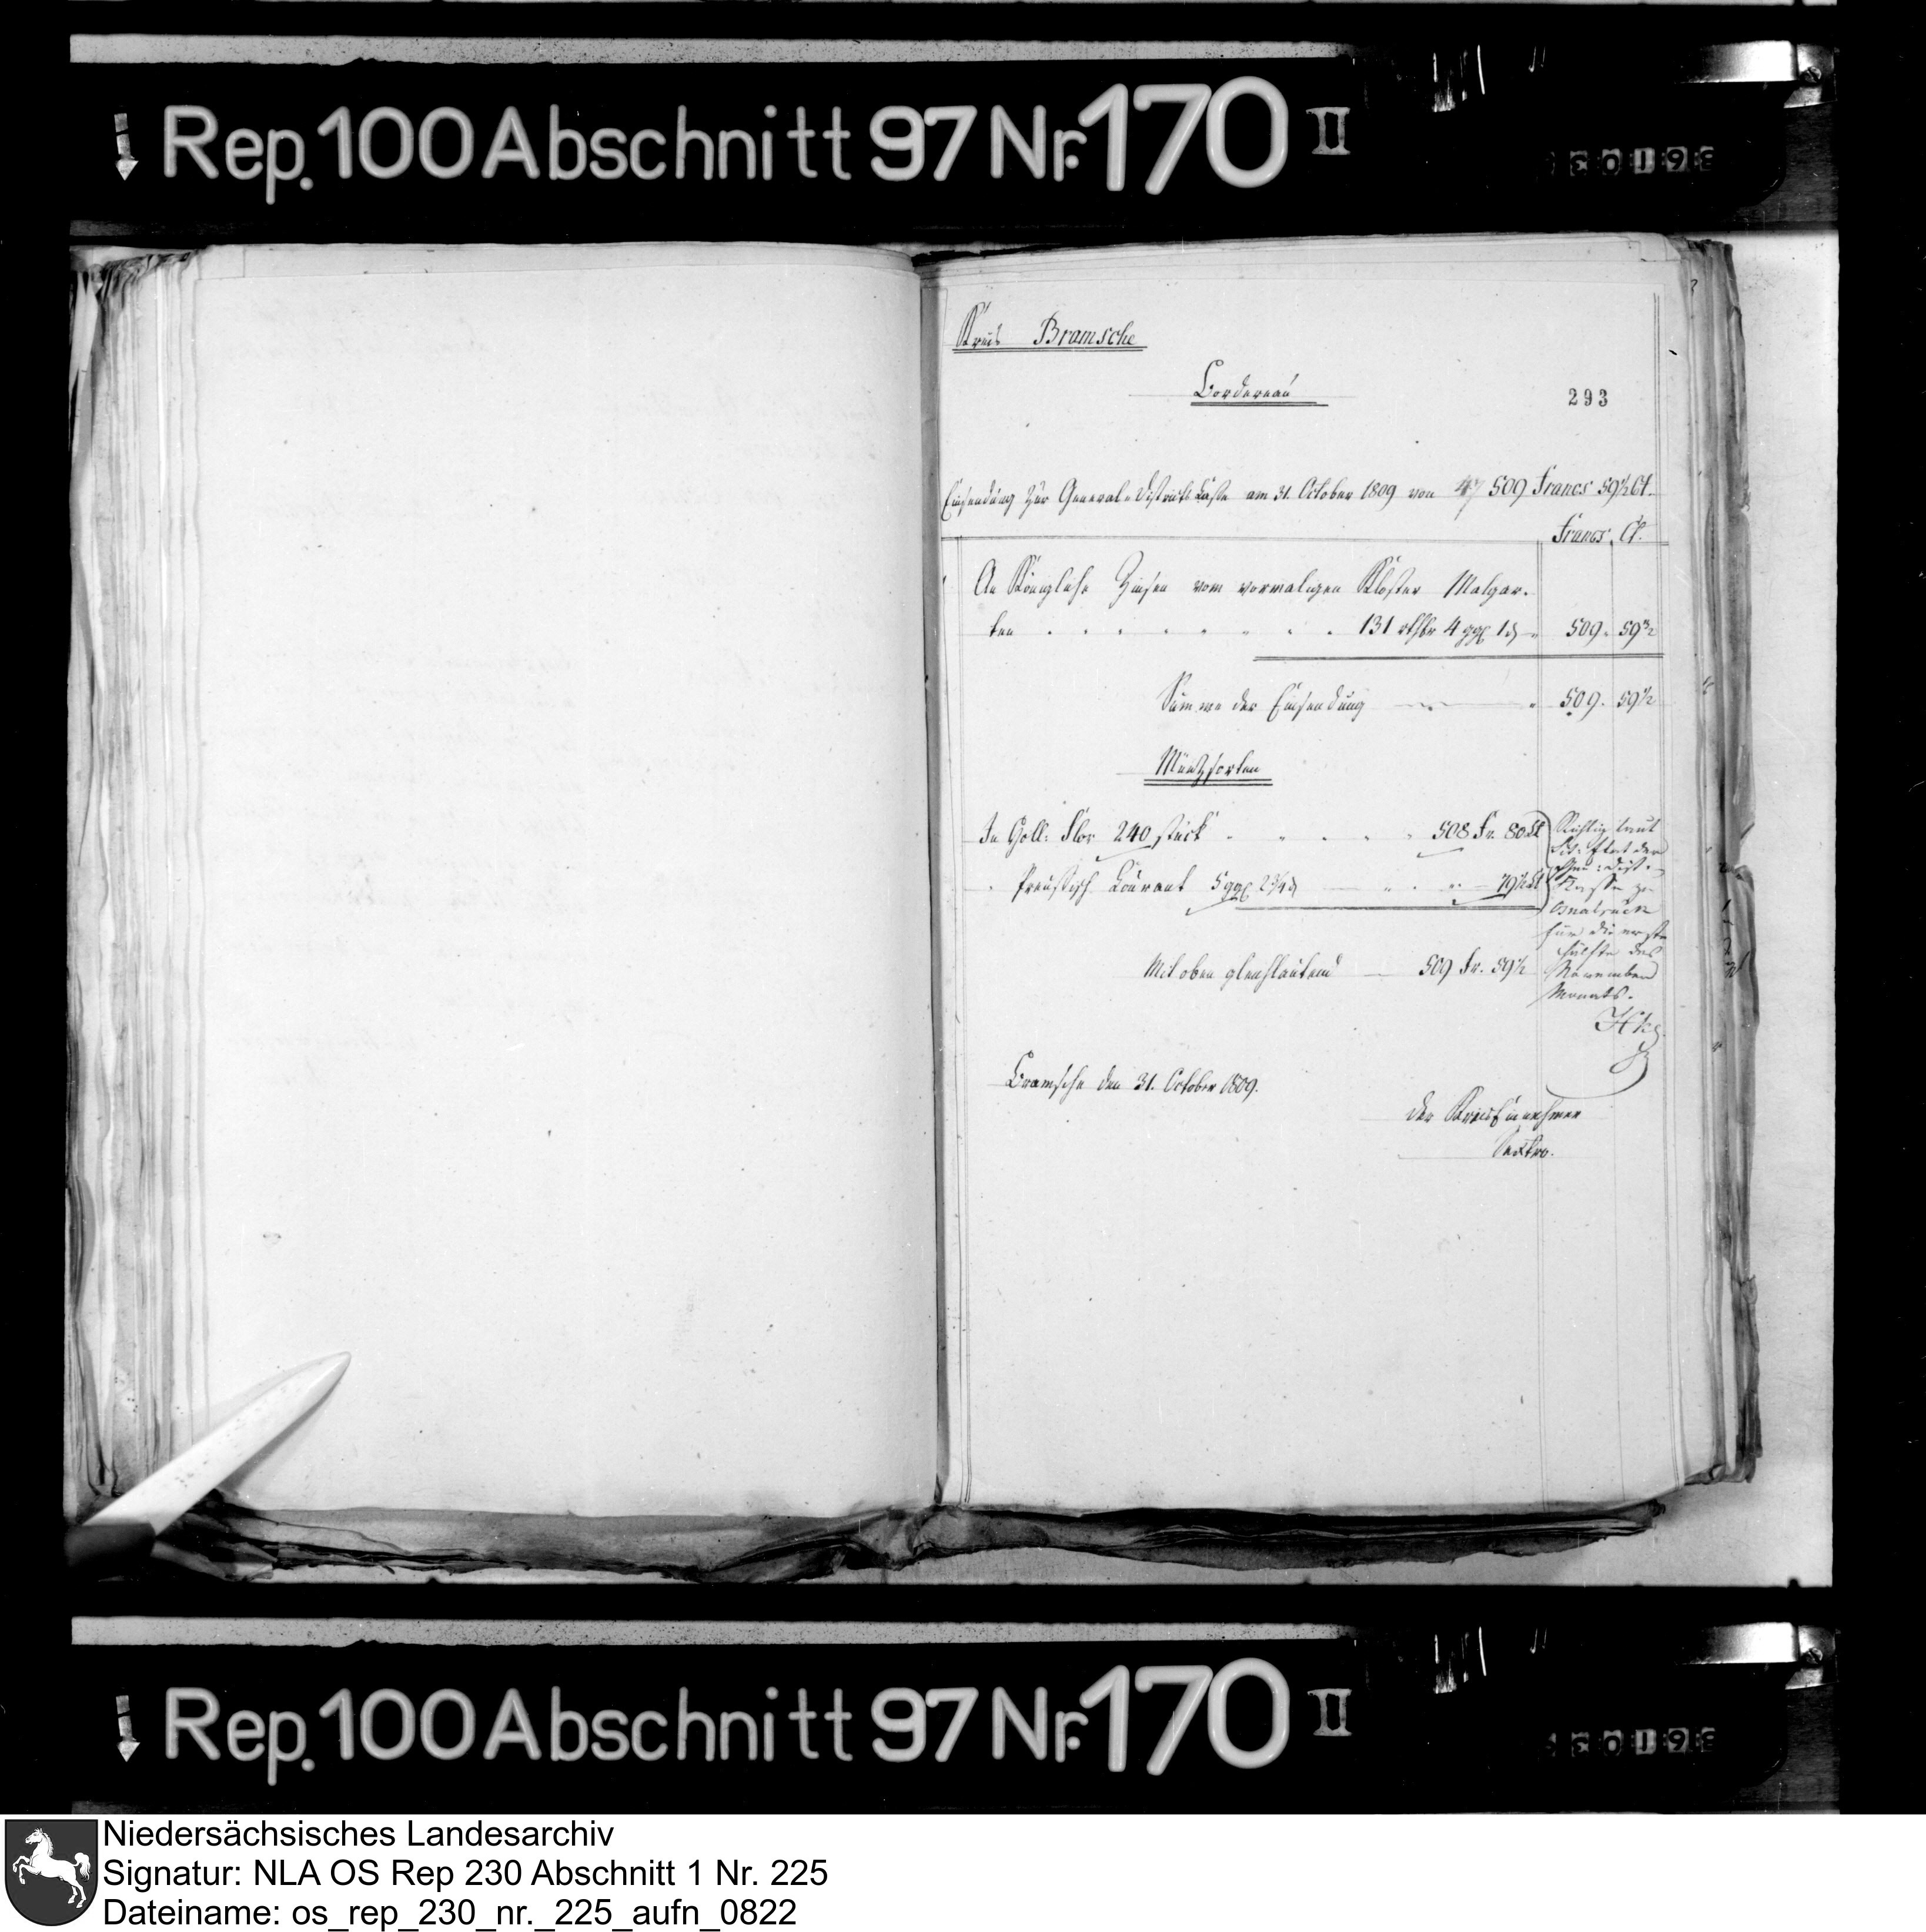 Rep. 100 Abschnitt 97 Nr. 170 II
Kreis Bramsche
Bordereau
293
Einsendung zur General-Districts Casse am 31. October 1809 von 509 Francs 59½ Ct.
Francs. Ct.
An Königliche Zinsen vom vormaligen Kloster Malgar-
ten 131 rthlr 4 ggl 1 ₰ 509. 59½
Summe der Einsendung 509. 59½
Müntzsorten
In Holl: Flor 240 stück 508 Fr. 80 Ct
Preussisch Courant 5 ggl 2¾ ₰ 79½ Ct
Mit oben gleichlautend 509 Fr. 59½
Richtig laut
der
Gen: Dist:
Kasse zu
Osnabrück
für die erste
Hälfte des
November
Monats.
Bramsche den 31. October 1809.
Der Kreis Einnehmer
Sextro.
Rep. 100 Abschnitt 97 Nr. 170 II
Niedersächsisches Landesarchiv
Signatur: NLA OS Rep 230 Abschnitt 1 Nr. 225
Dateiname: os_rep_230_nr._225_aufn_0822